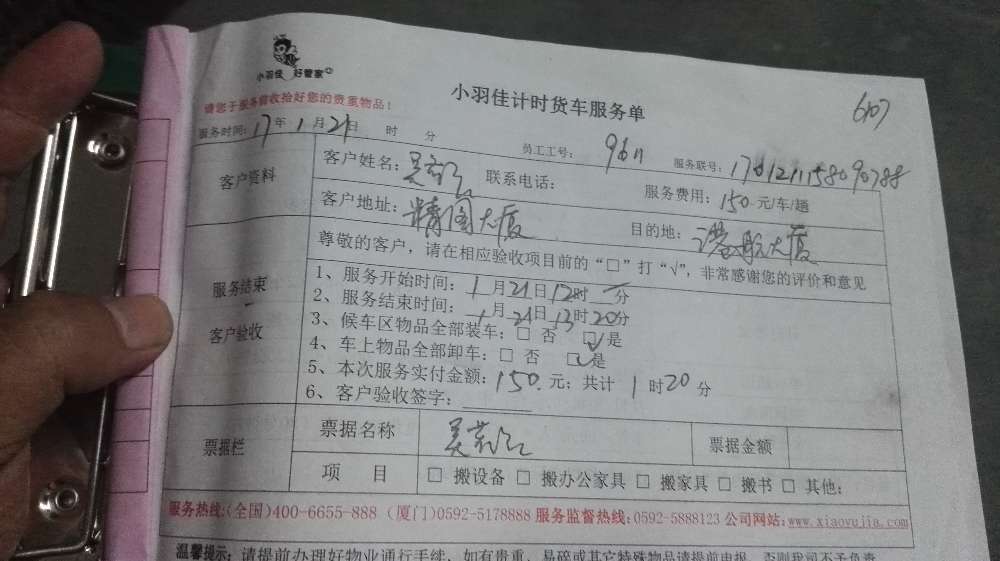 小羽佳 好管家
小羽佳计时货车服务单
6107
请您于服务前收拾好您的贵重物品!
服务时间: 17年1月21日 时 分 员工工号: 9611 服务联号:
客户资料 客户姓名: 联系电话: 服务费用: 150元/车/趟
客户地址: 精图大厦 目的地: 港航大厦
服务结束 – 客户验收
尊敬的客户，请在相应验收项目前的“□”打“√”，非常感谢您的评价和意见
1、服务开始时间: 1月21日12时 分
2、服务结束时间: 1月21日13时20分
3、候车区物品全部装车: □ 否 ☑是
4、车上物品全部卸车: □ 否 ☑是
5、本次服务实付金额: 150.元; 共计 1时20分
6、客户验收签字:
票据栏 票据名称 票据金额
项 目 □ 搬设备 □ 搬办公家具 □ 搬家具 □ 搬书 □ 其他:
服务热线:(全国)400-6655-888 (厦门)0592-5178888 服务监督热线:0592-5888123 公司网站:www.xiaoyujia.com
温馨提示: 请提前办理好物业通行手续，如有贵重、易碎或其它特殊物品请提前申报，否则我司不予负责